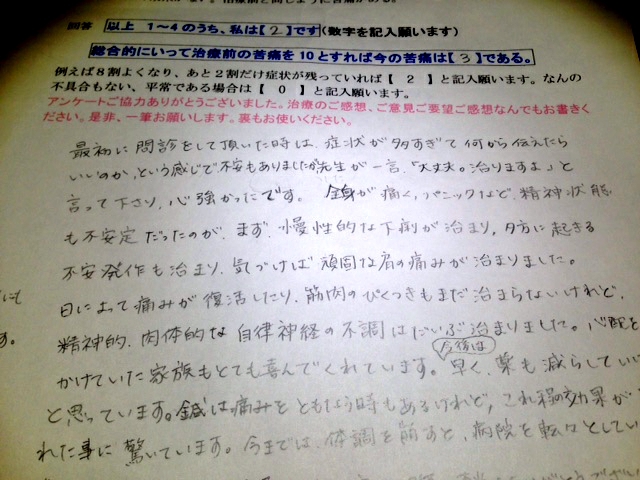 回答 以上 1～4のうち、私は【2】です(数字を記入願います)
総合的にいって治療前の苦痛を10とすれば今の苦痛は【3】である。
例えば8割よくなり、あと2割だけ症状が残っていれば【 2 】と記入願います。なんの
不具合もない、平常である場合は【 0 】と記入願います。
アンケートご協力ありがとうございました。治療のご感想、ご意見ご要望ご感想なんでもお書きく
ださい。是非、一筆お願いします。裏もお使いください。
最初に問診をして頂いた時は、症状が多すぎて何から伝えたら
いいのか、という感じで不安もありましたが先生が一言、「大丈夫。治りますよ」と
言って下さり、心強かったです。全身が痛く、パニックなど、精神状態
も不安定だったのが、まず、慢性的な下痢が治まり、夕方に起きる
不安発作も治まり、気づけば頑固な肩の痛みが治まりました。
日によって痛みが復活したり、筋肉のぴくつきもまだ治まらないけれど、
精神的、肉体的な自律神経の不調はだいぶ治まりました。心配を
かけていた家族もとても喜んでくれています。今後は早く、薬も減らしていい
と思っています。鍼は痛みをともなう時もあるけれど、これ程の効果が
れた事に驚いています。今までは、体調を崩すと、病院を転々としてい